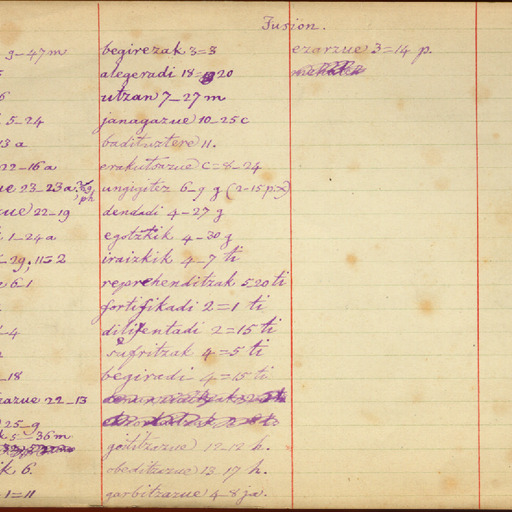 Fusion.
9-47m begirezak 3=3 ezarzue 3=14 p.
alegeradi 18= 20
6 utzan 7-27 m
5-24 janagazue 10-25 c
13 a badituztere 11.
22-16 a erakutsazue c=8-24
ue 23-23 a. ungijotez 6-9 g (2-15 p.x)
zue 22-19 dendadi 4-27 g
1-24a egotzkik 4-30 g
-29; 11=2 iraizkik 4-7 ti
6-1 reprehenditzak 5 20 ti
fortifikadi 2=1 ti
-4 2=15 ti
sufritzak 4=5 ti
-18 begiradi 4=15 ti
azue 22-13
25-9
5-36m 12-12 h.
ik 6. obeditzazue 13 17 h.
1=11 garbitzazue 4-8 ja.